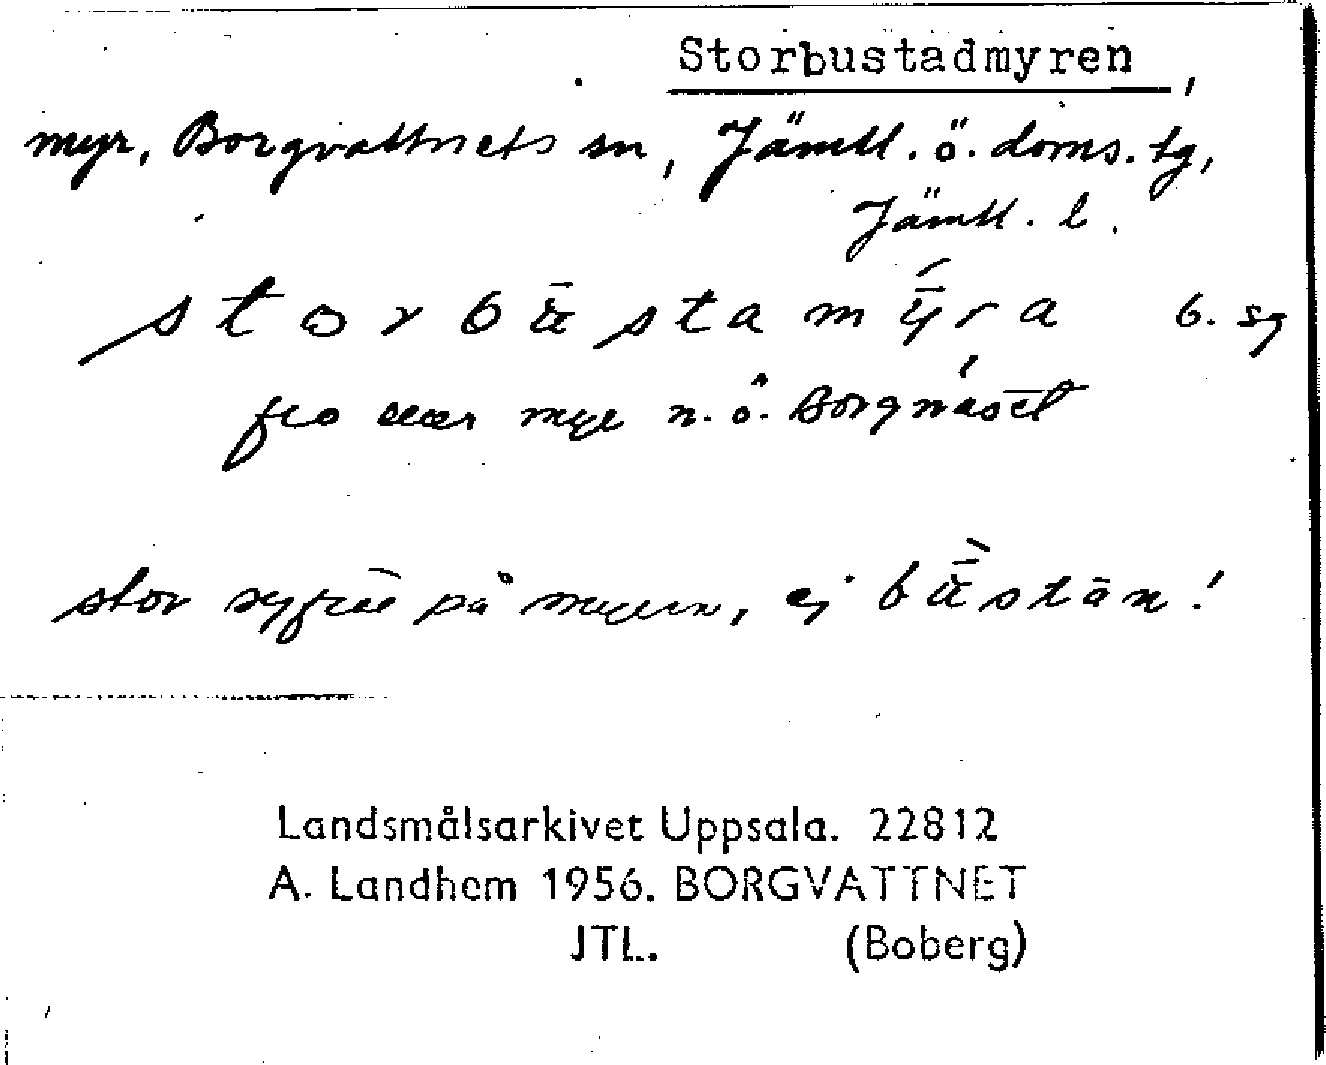 Storbustadmyren,
myr, Borgvattnets sn, Jämtl. ö. doms. tg,
Jämtl. l.
storbūstamȳra b. sg
myr n. ö. Borgnäset
stor på myren, ej būstān!
Landsmålsarkivet Uppsala. 22812
A. Landhem 1956. BORGVATTNET
JTL. (Boberg)